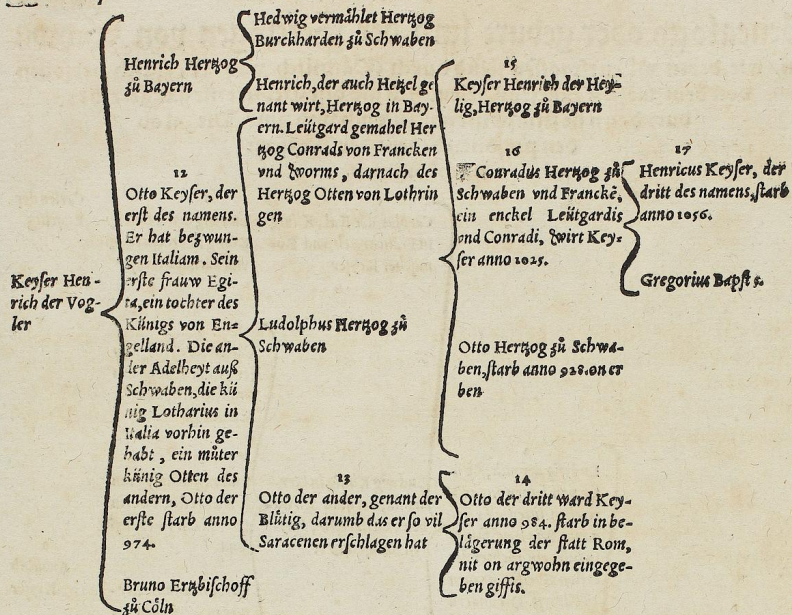 Keyser Hen-
rich der Vog-
ler
Henrich Hertzog
zů Bayern
12
Otto Keyser, der
erst des namens.
Er hat bezwun-
gen Italiam. Sein
erste frauw Egi-
ta, ein tochter des
Künigs von En-
gelland. Die an-
der Adelheyt auß
Schwaben, die kü
nig Lotharius in
Italia vorhin ge-
habt, ein můter
künig Otten des
andern, Otto der
erste starb anno
974.
Bruno Ertzbischoff
zů Cöln
Hedwig vermählet Hertzog
Burckharden zů Schwaben
Henrich, der auch Hetzel ge
nant wirt, Hertzog in Bay-
ern. Leütgard gemahel Her
tzog Conrads von Francken
vnd Worms, darnach des
Hertzog Otten von Lothrin
gen
Ludolphus Hertzog zů
Schwaben
13
Otto der ander, genant der
Blůtig, darumb das er so vil
Saracenen erschlagen hat
15
Keyser Henrich der Hey-
lig, Hertzog zů Bayern
16
Conradus Hertzog zů
Schwaben vnd Franckē,
ein enckel Leütgardis
vnd Conradi, wirt Key-
ser anno 1025.
Otto Hertzog zů Schwa-
ben, starb anno 928. on er
ben
14
Otto der dritt ward Key-
ser anno 984. starb in be-
lägerung der statt Rom,
nit on argwohn eingege-
ben giffts.
17
Henricus Keyser, der
dritt des namens, starb
anno 1056.
Gregorius Bapst 5.